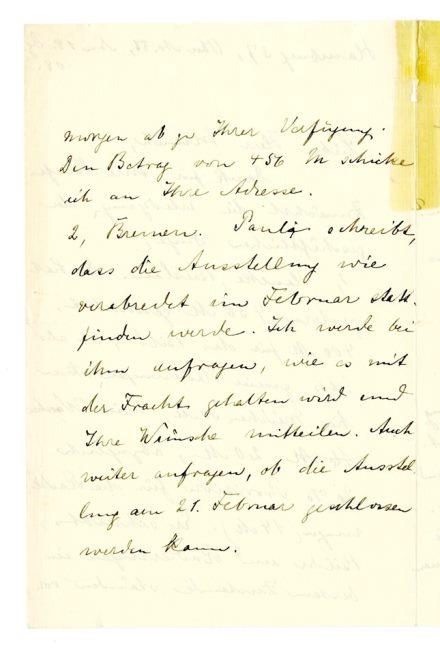 morgen ab zu Ihrer Verfügung.
Den Betrag von 456 M schicke
ich an Ihre Adresse.
2, Bremen. Pauli schreibt,
dass die Ausstellung wie
verabredet im Februar statt-
finden werde. Ich werde bei
ihm anfragen, wie es mit
der Fracht gehalten wird und
Ihre Wünsche mitteilen. Auch
weiter anfragen, ob die Ausstel
lung am 21. Februar geschlossen
werden kann.